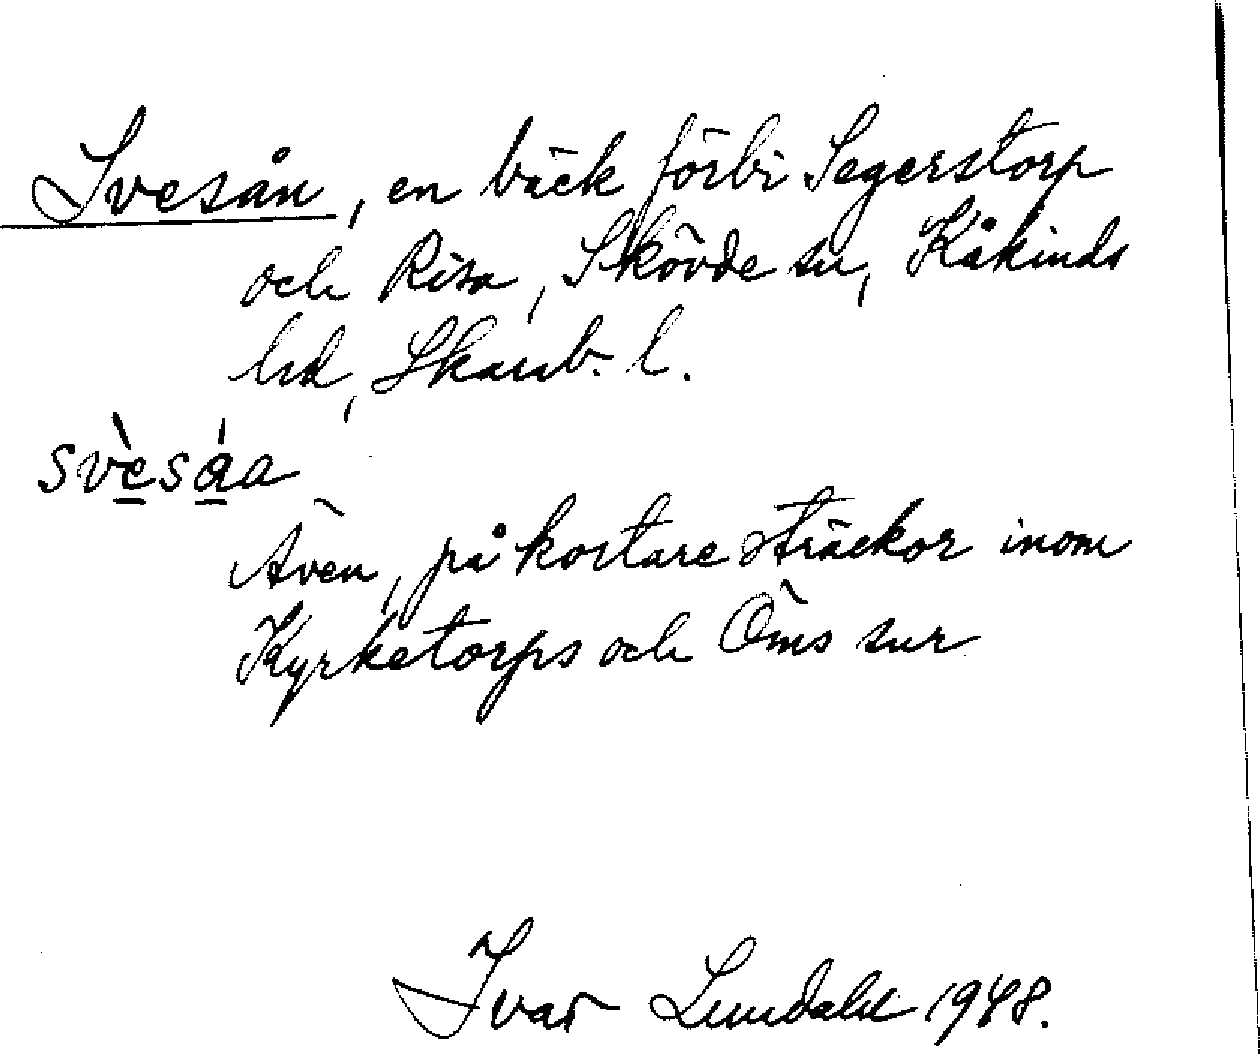 Svesån, en bäck förbi Segerstorp
och Risa, Skövde sn, Kåkinds
hd, Skarab. l.
svèsåa
Även, på kortare sträckor inom
Kyrketorps och Öms snr
Ivar Lundahl 1948.